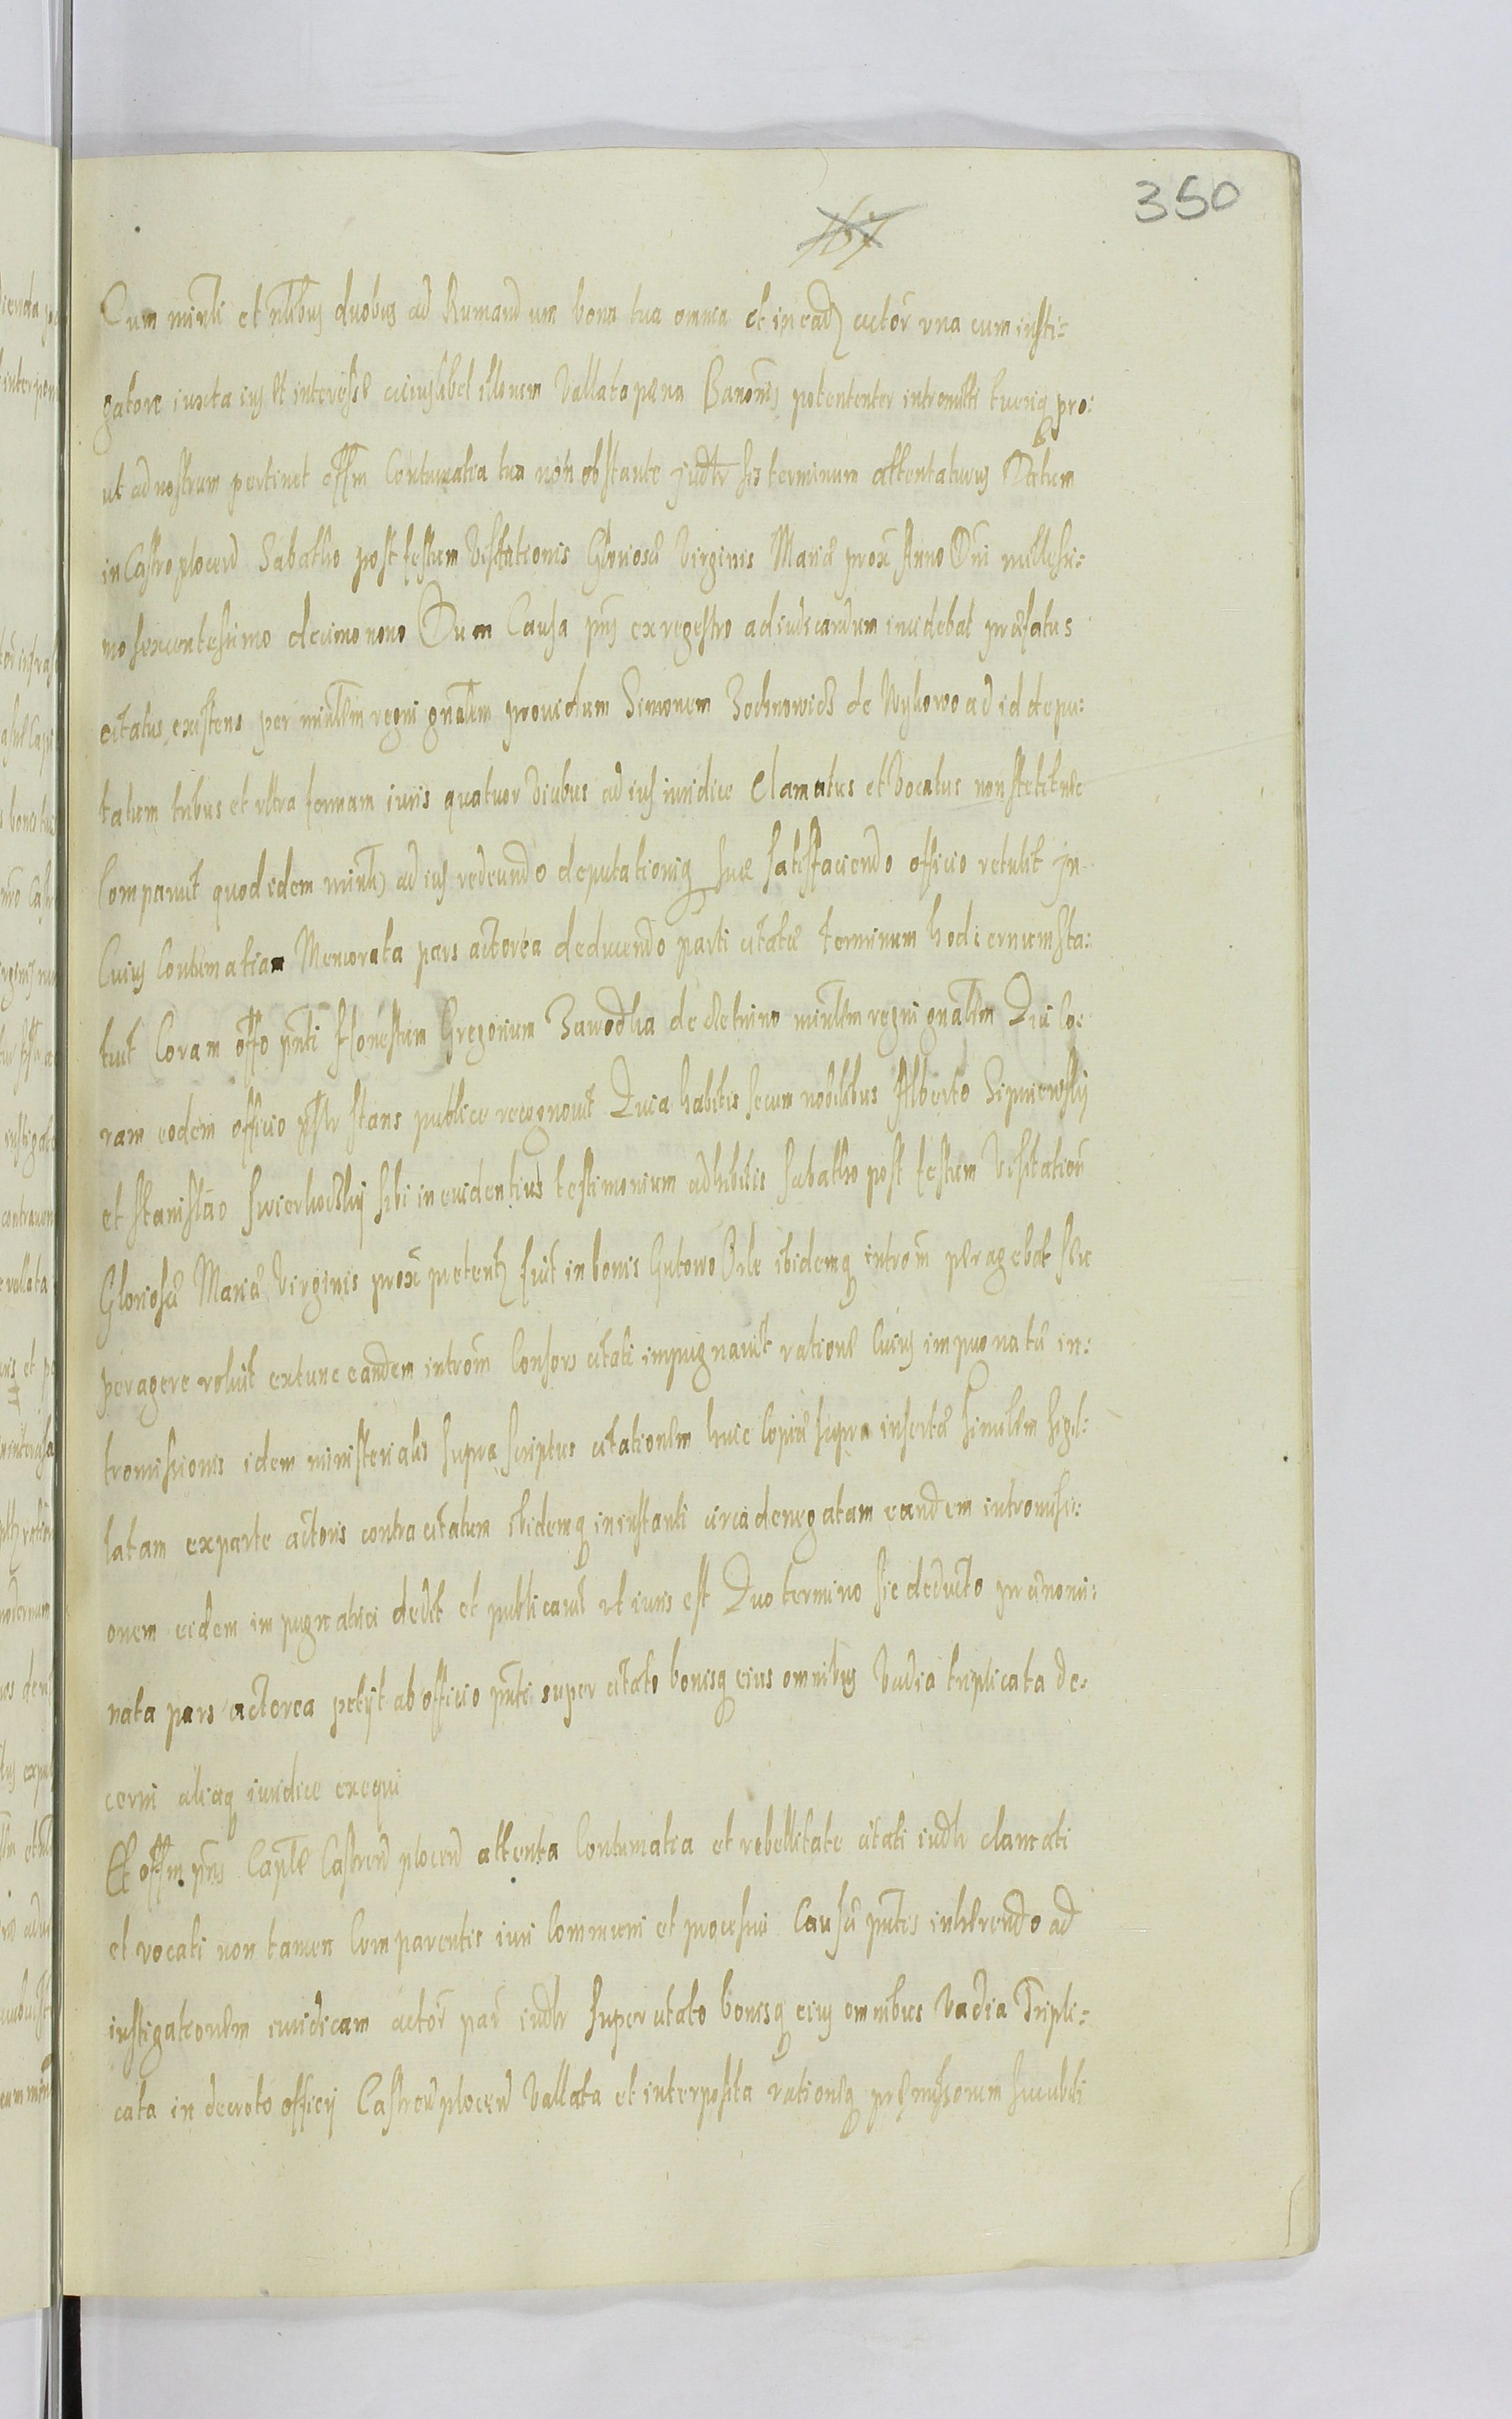 350
167
Cum minrli et nlibus duobus ad Rumandum bona tua omnia et in eadz actor vna cum insti:
gatore iuxta ius et interesse cuiuslibet illorum Vallata pæna Bannonis potententer intromitti tuerisq pro:
ut ad nostrum pertinet offm Contumatia tua non obstante judlr sis terminum attentaturus Datum
in Castro plocen Sabatho post festum Visitationis Gloriosæ Virginis Mariæ prox Anno Dni millesi:
mo sexcentesimo decimo nono Dum Causa pns ex regestro adiudicandum incidebat præfatus
citatus existens per minlem regni gnalem prouidum Simonem Zochnowicz de Wykowo ad id depu:
tatum tribus et vltra formam iuris quatuor vicibus ad ius iuridice Clamatus et Vocatus non stetit nec
Comparuit quod idem minlis ad ius redeundo deputationiq suæ satisfaciendo officio retulit In
Cuius Contumatiam Memorata pars actorea deducendo parti citatæ terminum hodiernum sta:
tuit Coram offo pnti Honestum Gregorium Zawodka de minlem regni gnalem Qui Co:
ram eodem officio pslr stans publice recognouit Quia habitis secum nobilibus Alberto Sipniewskij
et Stanislao Swierkockij sibi in euidentius testimonium adhibitis Sabatho post festum Visitation
Gloriosæ Mariæ Virginis prox preteritz fuit in bonis Gutowo Orle ibidemq introm peragebat seu
peragere voluit extunc eandem introm Consors citati impugnauit ratione Cuius impugnatæ in:
tromissionis idem ministerialis supra scriptus citationem huic Copiæ supra insertæ similem sigil:
latam ex parte actoris contra citatum ibidemq in instanti circa denegatam eandem intromissi:
onem eidem impugnatrici dedit et publicauit vt iuris est Quo termino sic deducto prænomi:
nata pars actorea petijt ab officio pnti super citato bonisq eius omnibus Vadia triplicata de:
cerni aliaq iuridice exequi
Et offm pns Captle Castren plocen attenta Contumatia et rebellitate citati iudlr clamati
et vocati non tamen Comparentis iuri Communi et processui Causæ pntis inhærendo ad
instigationem iuridicam actor par iudlr super citato bonisq eius omnibus Vadia Tripli:
cata in decreto officij Castren plocen Vallata et interposita rationeq præmissorum succubiti